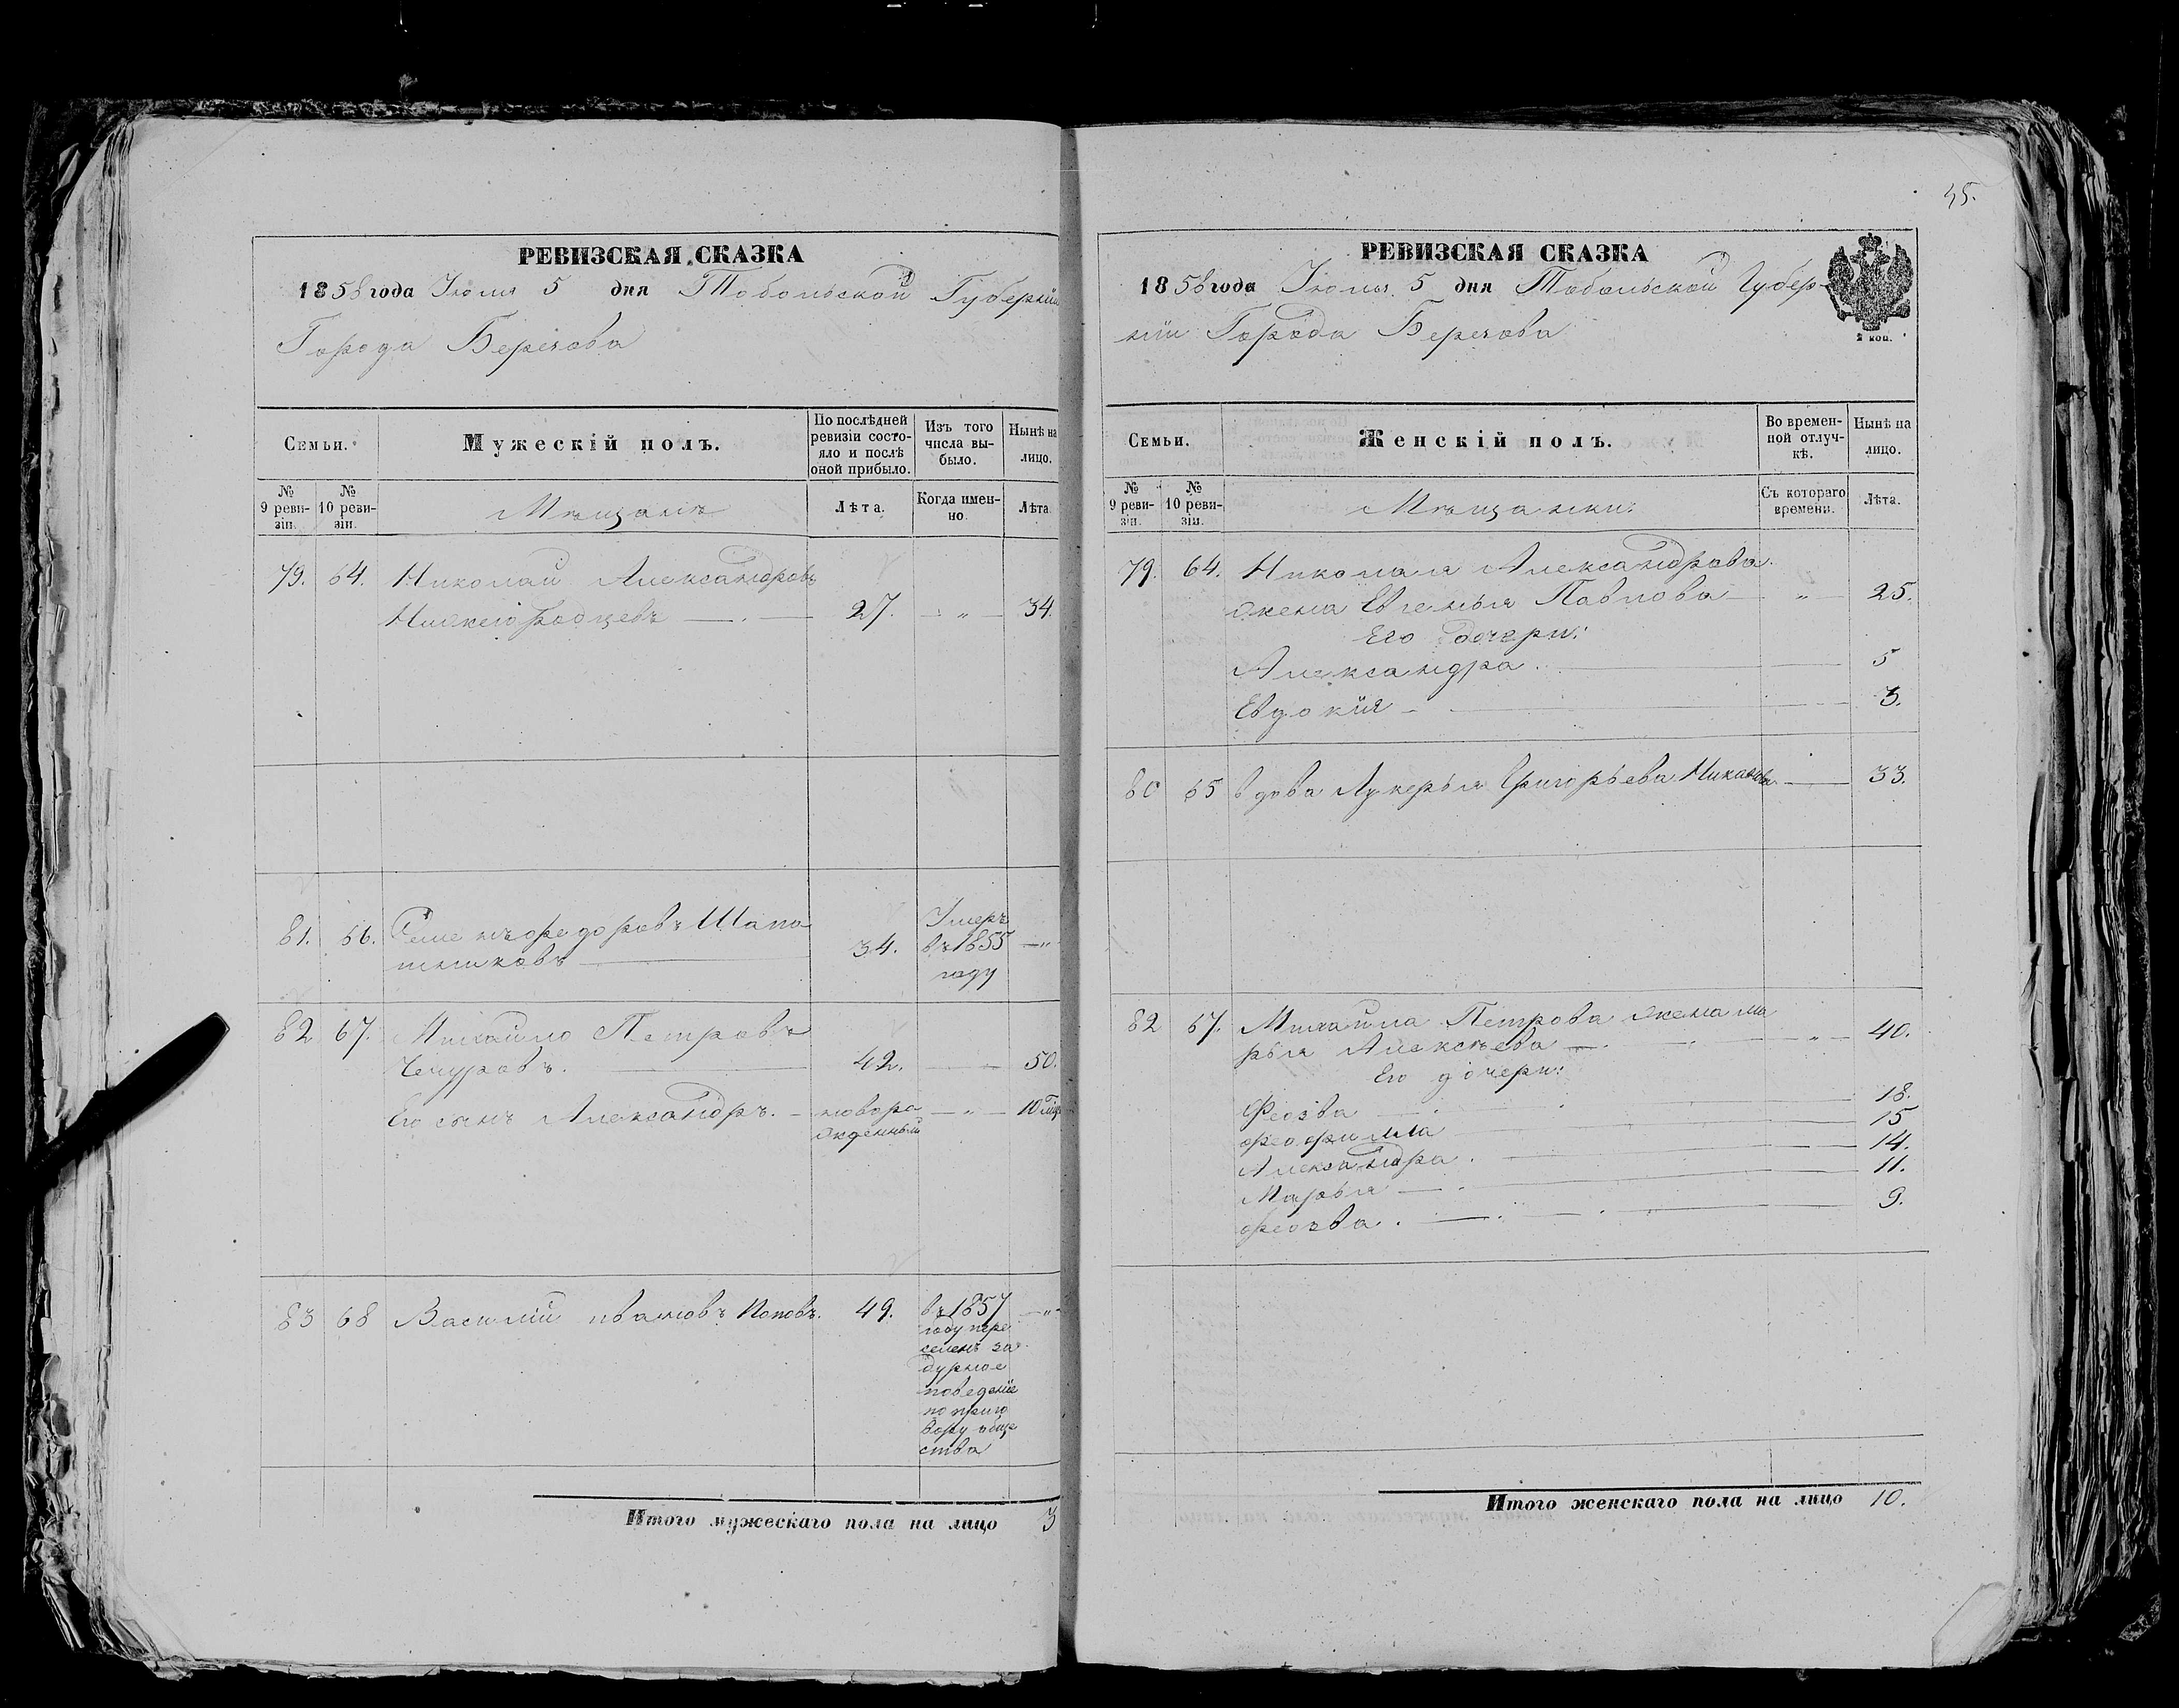 РЕВИЗСКАЯ СКАЗКА
1858 года Июля 5 дня Тобольской Губерніи
Города Березова
Семьи.
Мужескій полъ.
По послѣдней
ревизіи состо-
яло и послѣ
оной прибыло.
Изъ того
числа вы-
было.
Нынѣ на
лицо.
№
9 реви-
зіи.
№
10 реви-
зіи.
Мѣщанъ
Лѣта.
Когда имен-
но.
Лѣта.
79. 64. Николай Александровъ
Нижегородцевъ 27. " 34
81. 66. Семенъ Федоровъ Шапо
шниковъ 34.
Умеръ
въ 1855 "
году
82 67. Михайло Петровъ
Чечуровъ. 42. 50.
Его сынъ Александръ. новоро " 10
жденный
83 68 Василій Ивановъ Поповъ. 49. въ 1857 "
году пере
селенъ за
дурное
поведеніе
по приго
вору обще
ства
Итого мужескаго пола на лицо 3
45.
РЕВИЗСКАЯ СКАЗКА
1858 года Июля 5 дня Тобольской Губер-
ніи Города Березова
2 коп.
Семьи.
Женскій полъ.
Во времен-
ной отлуч-
кѣ.
Нынѣ на
лицо.
№
9 реви-
зіи.
№
10 реви-
зіи.
Мѣщанки:
Съ котораго
времени.
Лѣта.
79. 64. Николая Александрова
жена Евгенья Павлова " 25.
Его дочери:
Александра. 5
Евдокія 3.
80 65 Вдова Лукерья Григорьева 33.
82 67. Михайла Петрова жена Ма
рья Алексѣева " 40.
Его дочери:
Феозва 18.
Феофилла 15
Александра. 14.
Марья 11.
Феозва. " 9.
Итого женскаго пола на лицо 10.